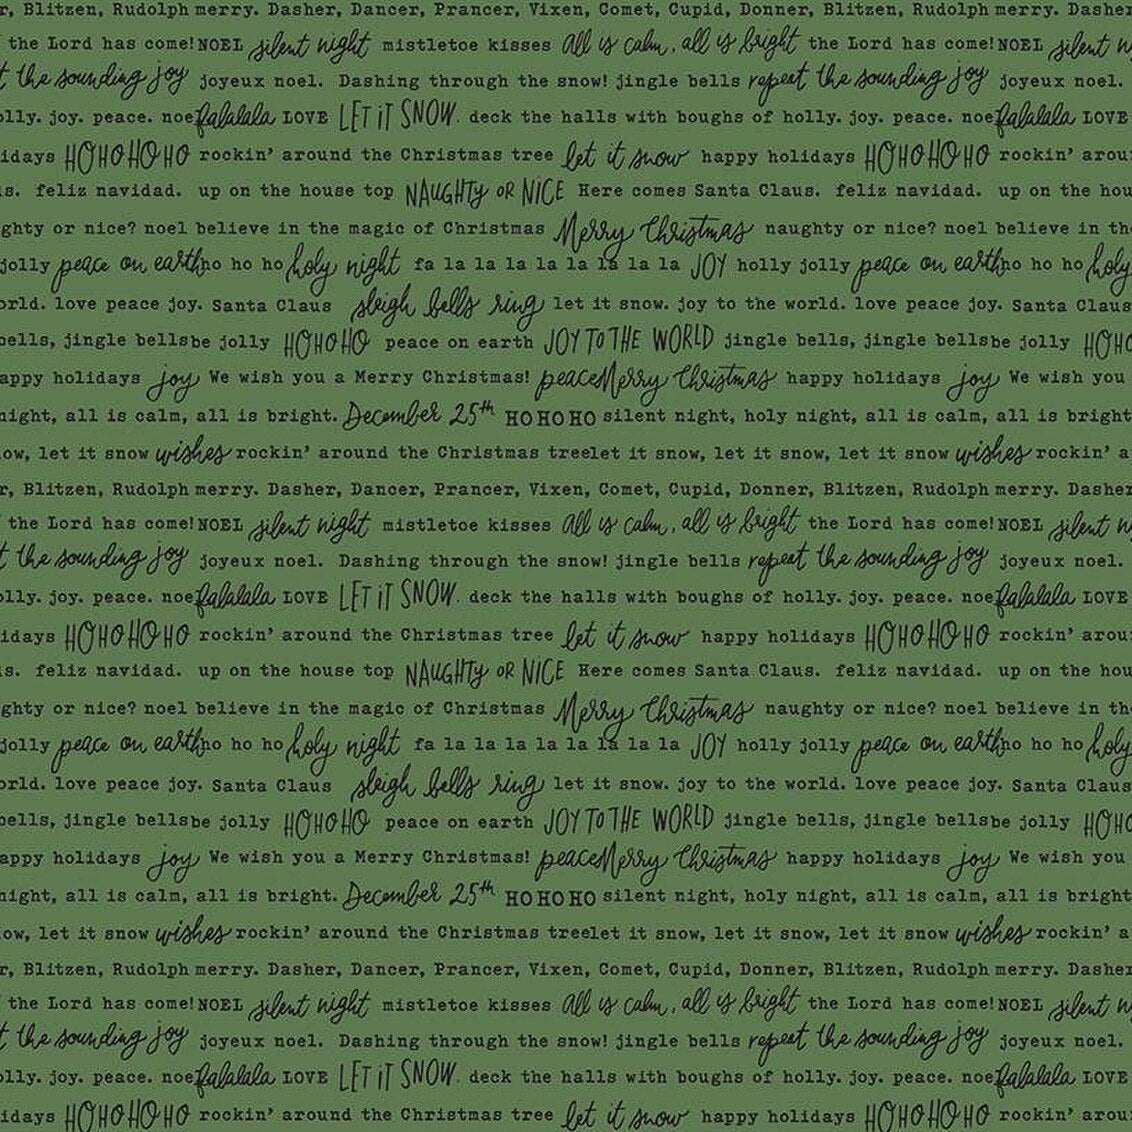 r, Blitzen, Rudolph merry. Dasher, Dancer, Prancer, Vixen, Comet, Cupid, Donner, Blitzen, Rudolph merry. Dasher
the Lord has come! NOEL silent night mistletoe kisses All is calm, all is bright the Lord has come! NOEL silent n
t the sounding joy joyeux noel. Dashing through the snow! jingle bells repeat the sounding joy joyeux noel.
olly. joy. peace. noe falalala LOVE LET iT SNOW. deck the halls with boughs of holly. joy. peace. noe falalala LOVE
idays HOHOHOHO rockin' around the Christmas tree let it snow happy holidays HOHOHOHO rockin' arou
s. feliz navidad. up on the house top NAUGHTY OR NICE Here comes Santa Claus. feliz navidad. up on the hou
ghty or nice? noel believe in the magic of Christmas Merry Christmas naughty or nice? noel believe in th
jolly peace on earth ho ho ho holy night fa la la la la la la la la JOY holly jolly peace on earth ho ho ho holy
orld. love peace joy. Santa Claus sleigh bells ring let it snow. joy to the world. love peace joy. Santa Claus
bells, jingle bells be jolly HOHOHO peace on earth JOY TO THE WORLD jingle bells, jingle bells be jolly HOHO
appy holidays joy We wish you a Merry Christmas! peace Merry Christmas happy holidays joy We wish you
night, all is calm, all is bright. December 25th HO HO HO silent night, holy night, all is calm, all is bright
ow, let it snow wishes rockin' around the Christmas tree let it snow, let it snow, let it snow wishes rockin' a
r, Blitzen, Rudolph merry. Dasher, Dancer, Prancer, Vixen, Comet, Cupid, Donner, Blitzen, Rudolph merry. Dasher
the Lord has come! NOEL silent night mistletoe kisses All is calm, all is bright the Lord has come! NOEL silent n
t the sounding joy joyeux noel. Dashing through the snow! jingle bells repeat the sounding joy joyeux noel.
olly. joy. peace. noe falalala LOVE LET iT SNOW. deck the halls with boughs of holly. joy. peace. noe falalala LOVE
idays HOHOHOHO rockin' around the Christmas tree let it snow happy holidays HOHOHOHO rockin' arou
s. feliz navidad. up on the house top NAUGHTY OR NICE Here comes Santa Claus. feliz navidad. up on the hou
ghty or nice? noel believe in the magic of Christmas Merry Christmas naughty or nice? noel believe in th
jolly peace on earth ho ho ho holy night fa la la la la la la la la JOY holly jolly peace on earth ho ho ho holy
orld. love peace joy. Santa Claus sleigh bells ring let it snow. joy to the world. love peace joy. Santa Claus
bells, jingle bells be jolly HOHOHO peace on earth JOY TO THE WORLD jingle bells, jingle bells be jolly HOHO
appy holidays joy We wish you a Merry Christmas! peace Merry Christmas happy holidays joy We wish you
night, all is calm, all is bright. December 25th HO HO HO silent night, holy night, all is calm, all is bright
ow, let it snow wishes rockin' around the Christmas tree let it snow, let it snow, let it snow wishes rockin' a
r, Blitzen, Rudolph merry. Dasher, Dancer, Prancer, Vixen, Comet, Cupid, Donner, Blitzen, Rudolph merry. Dasher
the Lord has come! NOEL silent night mistletoe kisses All is calm, all is bright the Lord has come! NOEL silent n
t the sounding joy joyeux noel. Dashing through the snow! jingle bells repeat the sounding joy joyeux noel.
olly. joy. peace. noe falalala LOVE LET iT SNOW. deck the halls with boughs of holly. joy. peace. noe falalala LOVE
idays HOHOHOHO rockin' around the Christmas tree let it snow happy holidays HOHOHOHO rockin' arou